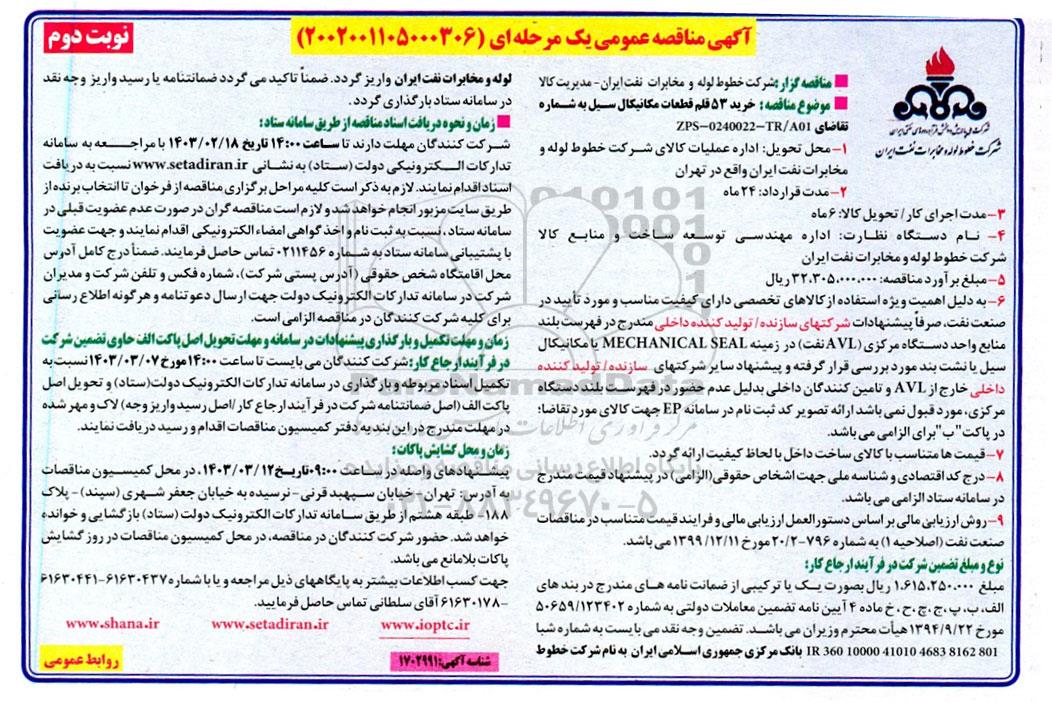 آگهی مناقصه عمومی یک مرحله ای (2002001105000306)
نوبت دوم
شرکت ملی پالایش و پخش فرآورده‌های نفتی ایران
شرکت خطوط لوله و مخابرات نفت ایران
مناقصه گزار: شرکت خطوط لوله و مخابرات نفت ایران - مدیریت کالا
موضوع مناقصه: خرید 53 قلم قطعات مکانیکال سیل به شماره
تقاضای ZPS-0240022-TR/A01
1- محل تحویل: اداره عملیات کالای شرکت خطوط لوله و
مخابرات نفت ایران واقع در تهران
2- مدت قرارداد: 24 ماه
3- مدت اجرای کار / تحویل کالا: 6 ماه
4- نام دستگاه نظارت: اداره مهندسی توسعه ساخت و منابع کالا
شرکت خطوط لوله و مخابرات نفت ایران
5- مبلغ برآورد مناقصه: 32.305.000.000 ریال
6- به دلیل اهمیت ویژه استفاده از کالاهای تخصصی دارای کیفیت مناسب و مورد تأیید در
صنعت نفت، صرفاً پیشنهادات شرکتهای سازنده/ تولید کننده داخلی مندرج در فهرست بلند
منابع واحد دستگاه مرکزی (AVL نفت) در زمینه MECHANICAL SEAL یا مکانیکال
سیل یا نشت بند مورد بررسی قرار گرفته و پیشنهاد سایر شرکتهای سازنده/ تولید کننده
داخلی خارج از AVL و تامین کنندگان داخلی بدلیل عدم حضور در فهرست بلند دستگاه
مرکزی، مورد قبول نمی باشد ارائه تصویر کد ثبت نام در سامانه EP جهت کالای مورد تقاضا؛
در پاکت "ب" برای الزامی می باشد.
7- قیمت ها متناسب با کالای ساخت داخل با لحاظ کیفیت ارائه گردد.
8- درج کد اقتصادی و شناسه ملی جهت اشخاص حقوقی (الزامی) در پیشنهاد قیمت مندرج
در سامانه ستاد الزامی می باشد.
9- روش ارزیابی مالی بر اساس دستورالعمل ارزیابی مالی و فرایند قیمت متناسب در مناقصات
صنعت نفت (اصلاحیه 1) به شماره 796-20/2 مورخ 1399/12/11 می باشد.
نوع و مبلغ تضمین شرکت در فرآیند ارجاع کار:
مبلغ 1.615.250.000 ریال بصورت یک یا ترکیبی از ضمانت نامه های مندرج در بند های
الف، ب، پ، ج، چ، ح، خ ماده 4 آیین نامه تضمین معاملات دولتی به شماره 50659/123402
مورخ 1394/9/22 هیأت محترم وزیران می باشد. تضمین وجه نقد می بایست به شماره شبا
IR 360 10000 41010 4683 8162 801 بانک مرکزی جمهوری اسلامی ایران به نام شرکت خطوط
لوله و مخابرات نفت ایران واریز گردد. ضمناً تاکید می گردد ضمانتنامه یا رسید واریز وجه نقد
در سامانه ستاد بارگذاری گردد.
زمان و نحوه دریافت اسناد مناقصه از طریق سامانه ستاد:
شرکت کنندگان مهلت دارند تا ساعت 14:00 تاریخ 1403/02/18 با مراجعه به سامانه
تدارکات الکترونیکی دولت (ستاد) به نشانی www.setadiran.ir نسبت به دریافت
اسناد اقدام نمایند. لازم به ذکر است کلیه مراحل برگزاری مناقصه از فرخوان تا انتخاب برنده از
طریق سایت مزبور انجام خواهد شد و لازم است مناقصه گران در صورت عدم عضویت قبلی در
سامانه ستاد، نسبت به ثبت نام و اخذ گواهی امضاء الکترونیکی اقدام نمایند و جهت عضویت
با پشتیبانی سامانه ستاد به شماره 0211456 تماس حاصل فرمایند. ضمناً درج کامل آدرس
محل اقامتگاه شخص حقوقی (آدرس پستی شرکت)، شماره فکس و تلفن شرکت و مدیران
شرکت در سامانه تدارکات الکترونیک دولت جهت ارسال دعوتنامه و هرگونه اطلاع رسانی
برای کلیه شرکت کنندگان در مناقصه الزامی است.
زمان و مهلت تکمیل و بارگذاری پیشنهادات در سامانه و مهلت تحویل اصل پاکت الف حاوی تضمین شرکت
در فرآیند ارجاع کار: شرکت کنندگان می بایست تا ساعت 14:00 مورخ 1403/03/07 نسبت به
تکمیل اسناد مربوطه و بارگذاری در سامانه تدارکات الکترونیک دولت (ستاد) و تحویل اصل
پاکت الف (اصل ضمانتنامه شرکت در فرآیند ارجاع کار / اصل رسید واریز وجه) لاک و مهر شده
در مهلت مندرج در این بند به دفتر کمیسیون مناقصات اقدام و رسید دریافت نمایند.
زمان و محل گشایش پاکات:
پیشنهادهای واصله در ساعت 09:00 تاریخ 1403/03/12 در محل کمیسیون مناقصات
به آدرس: تهران - خیابان سپهبد قرنی - نرسیده به خیابان جعفر شهری (سپند) - پلاک
188 - طبقه هشتم از طریق سامانه تدارکات الکترونیک دولت (ستاد) بازگشایی و خوانده
خواهد شد. حضور شرکت کنندگان در مناقصه، در محل کمیسیون مناقصات در روز گشایش
پاکات بلامانع می باشد.
جهت کسب اطلاعات بیشتر به پایگاههای ذیل مراجعه و یا با شماره 61630437-61630441
-61630178 آقای سلطانی تماس حاصل فرمایید.
www.shana.ir www.setadiran.ir www.ioptc.ir
شناسه آگهی: 1702991
روابط عمومی
ParsNamadData
پایگاه اطلاع رسانی مناقصه و مزایده
021-88349670-5